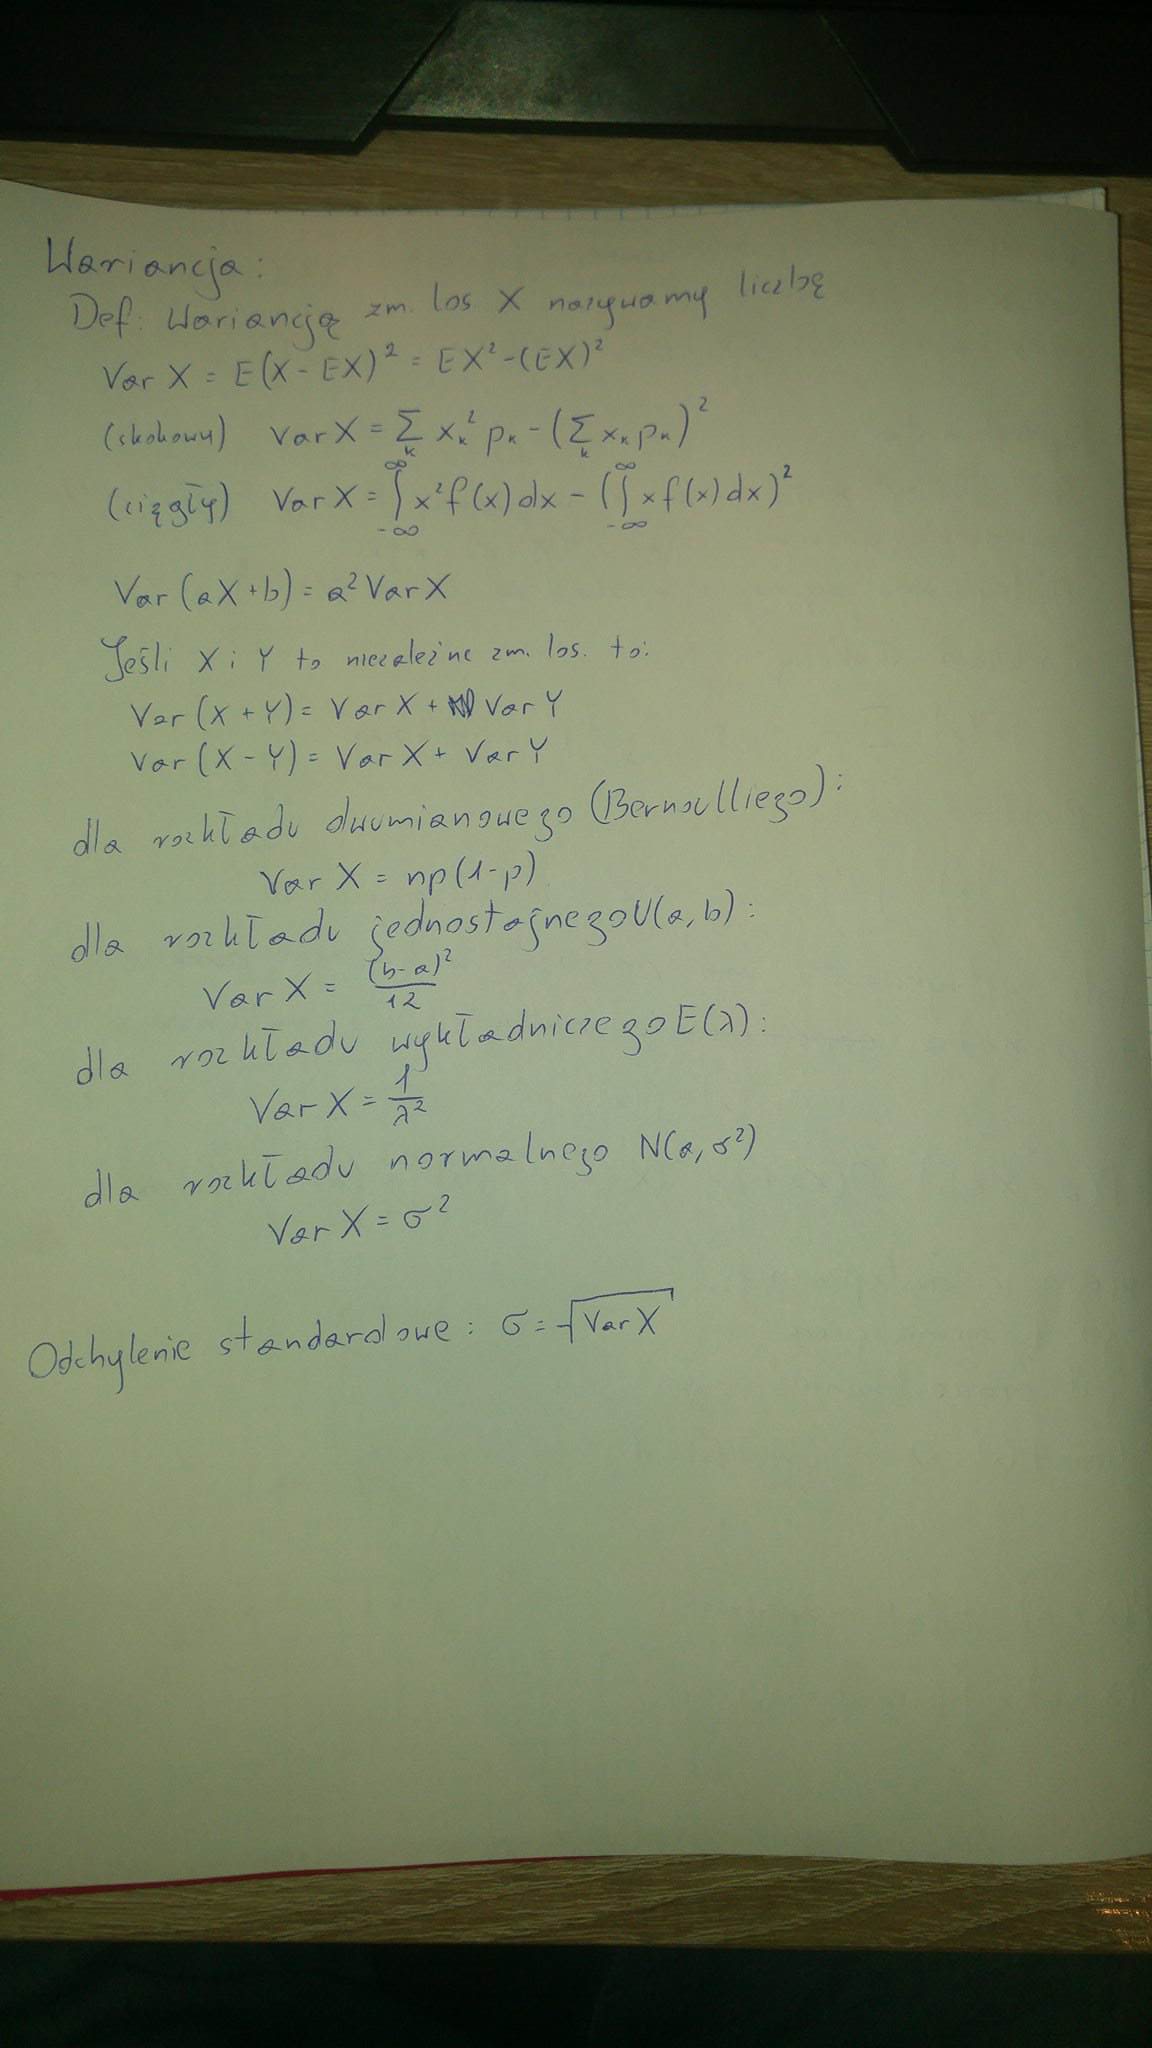 Wariancja:
Def: Wariancją zm. los X nazywamy liczbę
Var X = E(X - EX)² = EX² - (EX)²
(skokowy) Var X = ∑_k x_k² p_k - (∑_k x_k p_k)²
(ciągły) Var X = ∫_{-∞}^{∞} x² f(x) dx - (∫_{-∞}^{∞} x f(x) dx)²
Var (aX + b) = a² Var X
Jeśli X i Y to niezależne zm. los. to:
Var (X + Y) = Var X + Var Y
Var (X - Y) = Var X + Var Y
dla rozkładu dwumianowego (Bernoulliego):
Var X = np(1-p)
dla rozkładu jednostajnego U(a, b):
Var X = (b-a)²/12
dla rozkładu wykładniczego E(λ):
Var X = 1/λ²
dla rozkładu normalnego N(a, σ²)
Var X = σ²
Odchylenie standardowe: σ = √Var X